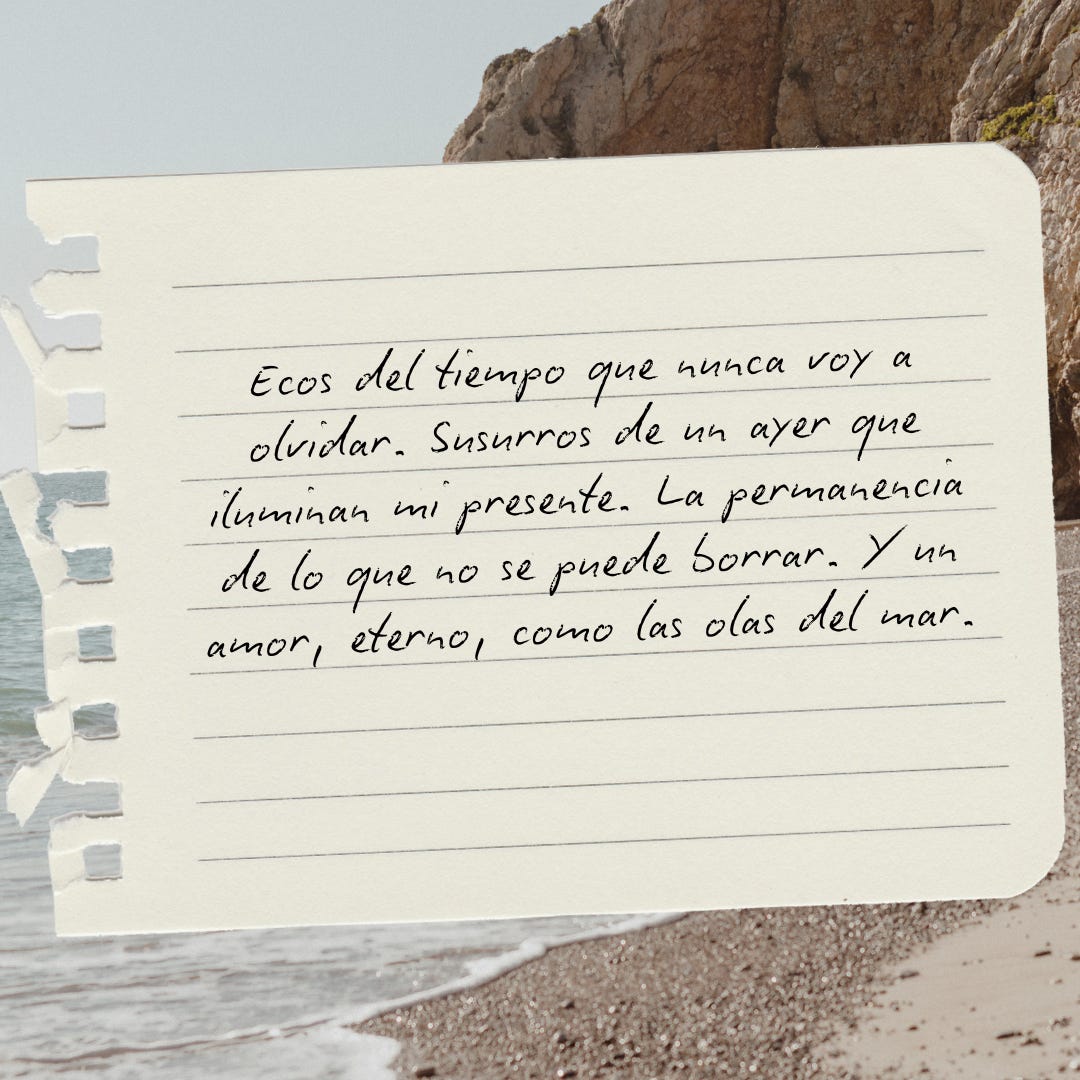 Ecos del tiempo que nunca voy a
olvidar. Susurros de un ayer que
iluminan mi presente. La permanencia
de lo que no se puede borrar. Y un
amor, eterno, como las olas del mar.